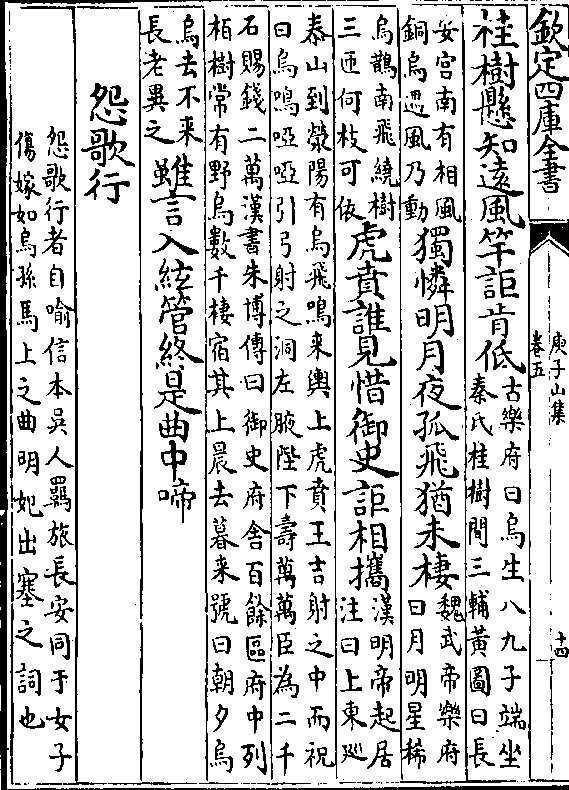 欽定四庫全書
庾子山集
卷五
十四
桂樹懸知遠風竿詎肯低
古樂府曰烏生八九子端坐
秦氏桂樹間三輔黃圖曰長
安宫南有相風
銅烏遇風乃動
獨憐明月夜孤飛猶未棲
魏武帝樂府
曰月明星稀
烏鵲南飛繞樹
三匝何枝可依
虎賁誰見惜御史詎相攜
漢明帝起居
注曰上東廵
泰山到滎陽有烏飛鳴来輿上虎賁王吉射之中而祝
曰烏鳴啞啞引弓射之洞左腋陛下壽萬萬臣為二千
石賜錢二萬漢書朱博傳曰御史府舍百餘區府中列
栢樹常有野烏數千棲宿其上晨去暮来號曰朝夕烏
烏去不来
長老異之
雖言入絃管終是曲中啼
怨歌行
怨歌行者自喻信本吳人羇旅長安同于女子
傷嫁如烏孫馬上之曲明妃出塞之詞也